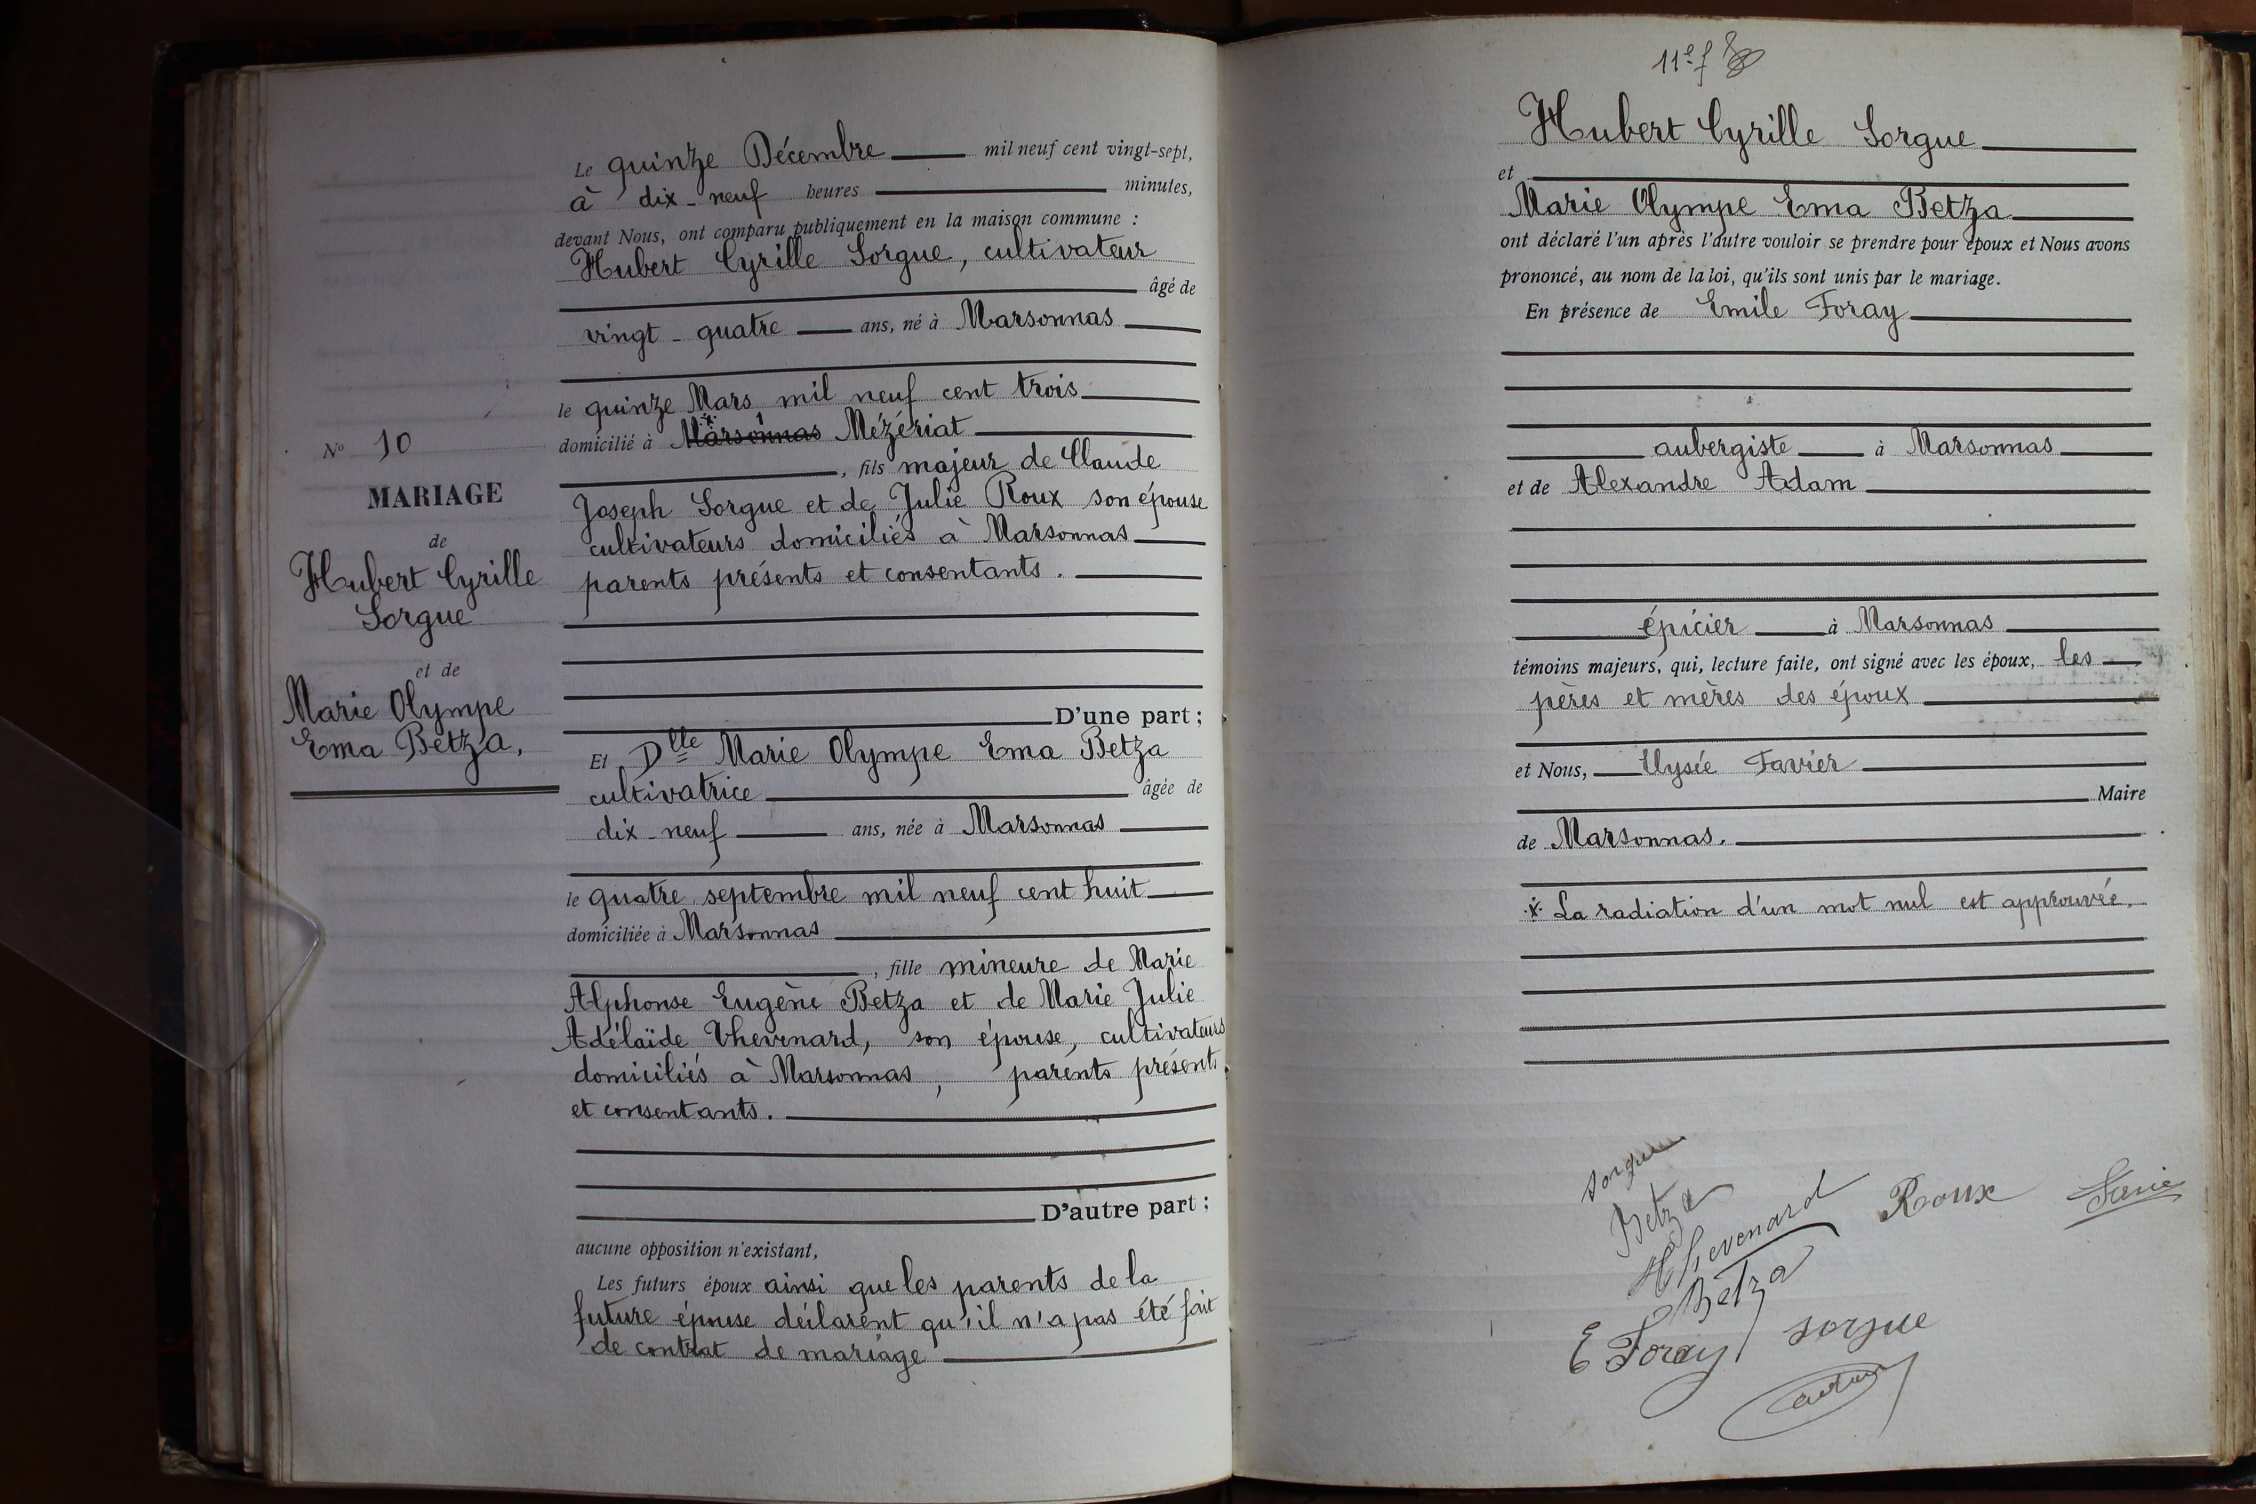 N° 10
MARIAGE
de
Hubert Cyrille
Sorgue
et de
Marie Olympe
Ema Betza,
Le quinze Décembre mil neuf cent vingt-sept,
à dix-neuf heures minutes,
devant Nous, ont comparu publiquement en la maison commune :
Hubert Cyrille Sorgue, cultivateur
âgé de
vingt-quatre ans, né à Marsonnas
le quinze Mars mil neuf cent trois
domicilié à Marsonnas Mézériat
, fils majeur de Claude
Joseph Sorgue et de Julie Roux son épouse
cultivateurs domiciliés à Marsonnas
parents présents et consentants.
D'une part ;
Et Dlle Marie Olympe Ema Betza
cultivatrice âgée de
dix-neuf ans, née à Marsonnas
le quatre septembre mil neuf cent huit
domiciliée à Marsonnas
, fille mineure de Marie
Alphonse Eugène Betza et de Marie Julie
Adélaïde Thevenard, son épouse, cultivateurs
domiciliés à Marsonnas, parents présents
et consentants.
D'autre part ;
aucune opposition n'existant,
Les futurs époux ainsi que les parents de la
future épouse déclarent qu'il n'a pas été fait
de contrat de mariage
11e f
Hubert Cyrille Sorgue
et
Marie Olympe Ema Betza
ont déclaré l'un après l'autre vouloir se prendre pour époux et Nous avons
prononcé, au nom de la loi, qu'ils sont unis par le mariage.
En présence de Emile Foray
aubergiste à Marsonnas
et de Alexandre Adam
épicier à Marsonnas
témoins majeurs, qui, lecture faite, ont signé avec les époux, les
pères et mères des époux
et Nous, Elysée Favier
Maire
de Marsonnas.
※ La radiation d'un mot nul est approuvée.
Sorgue
Betza
Thevenard Roux
Betza
E Foray Sorgue